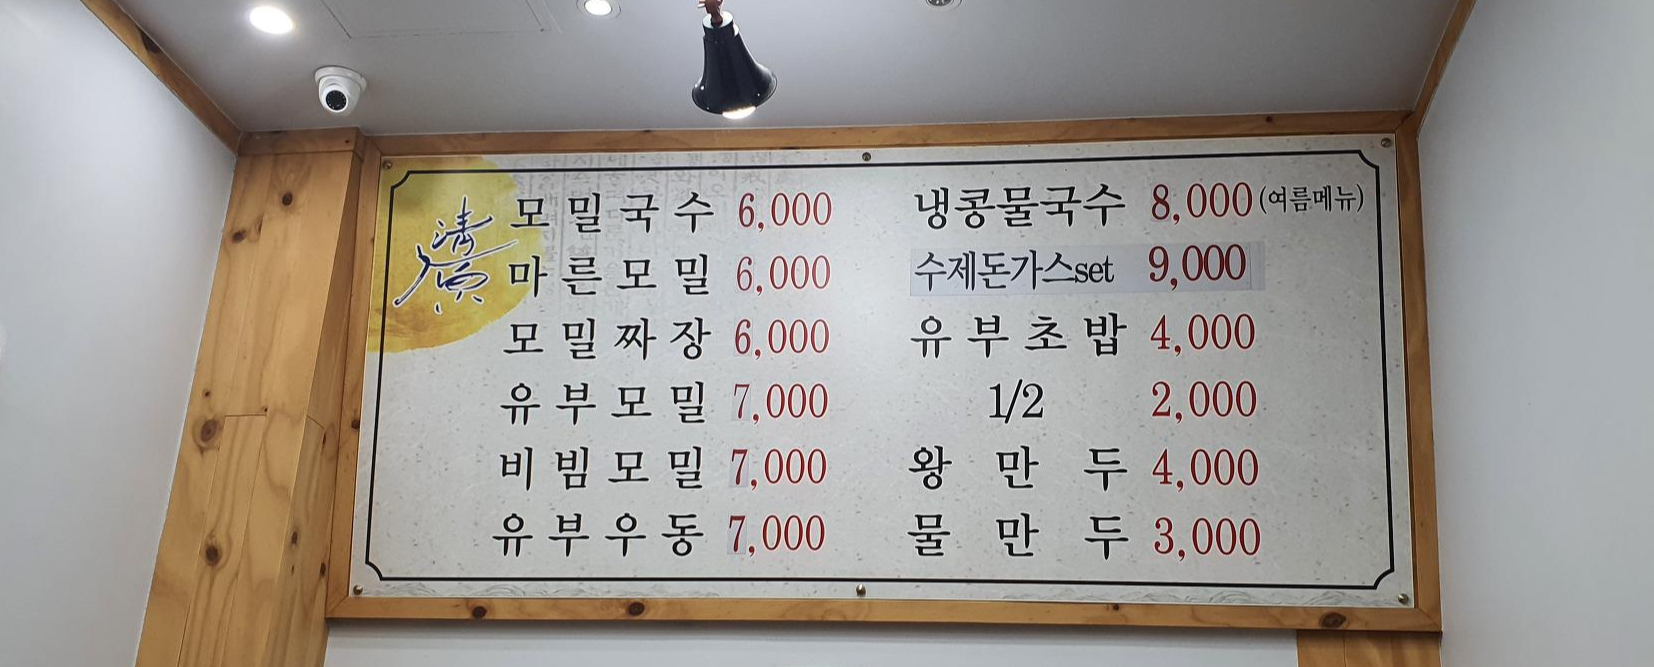 모밀국수 6,000
마른모밀 6,000
모밀짜장 6,000
유부모밀 7,000
비빔모밀 7,000
유부우동 7,000
냉콩물국수 8,000 (여름메뉴)
수제돈가스set 9,000
유부초밥 4,000
1/2 2,000
왕만두 4,000
물만두 3,000